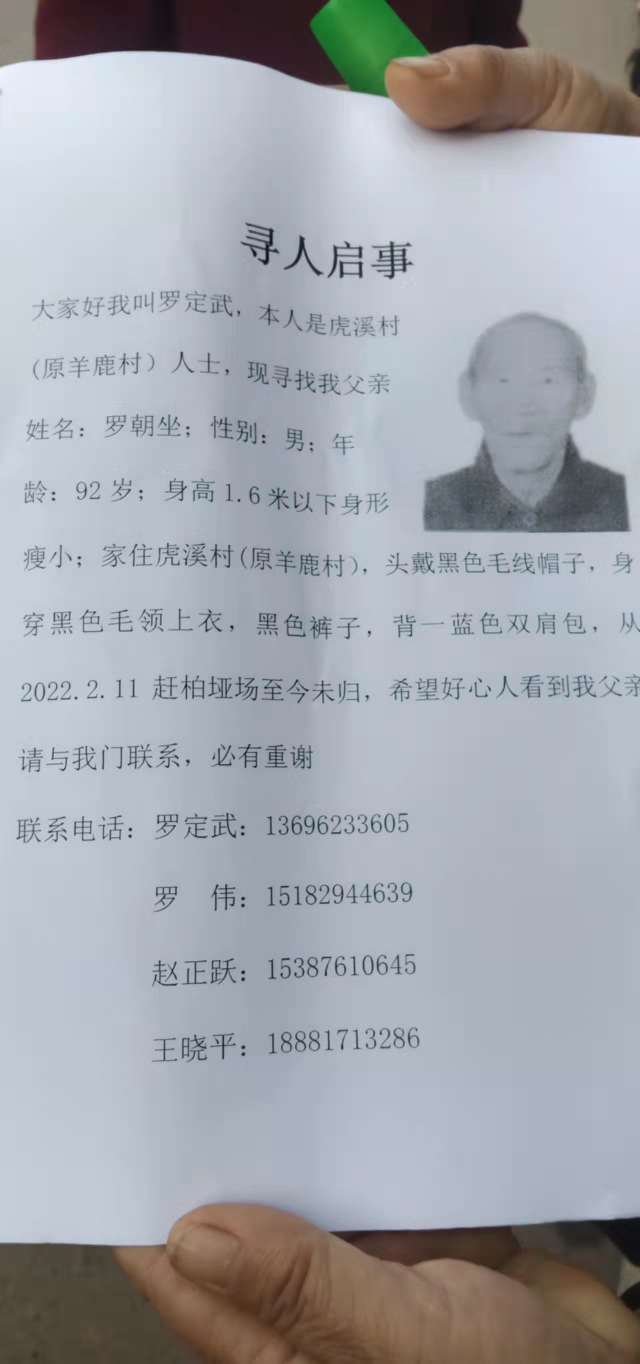 寻人启事
大家好我叫罗定武，本人是虎溪村
(原羊鹿村）人士，现寻找我父亲
姓名：罗朝坐；性别：男；年
龄：92岁；身高1.6米以下身形
瘦小；家住虎溪村(原羊鹿村)，头戴黑色毛线帽子，身
穿黑色毛领上衣，黑色裤子，背一蓝色双肩包，从
2022.2.11 赶柏垭场至今未归，希望好心人看到我父亲
请与我门联系，必有重谢
联系电话：罗定武：13696233605
罗　伟：15182944639
赵正跃：15387610645
王晓平：18881713286